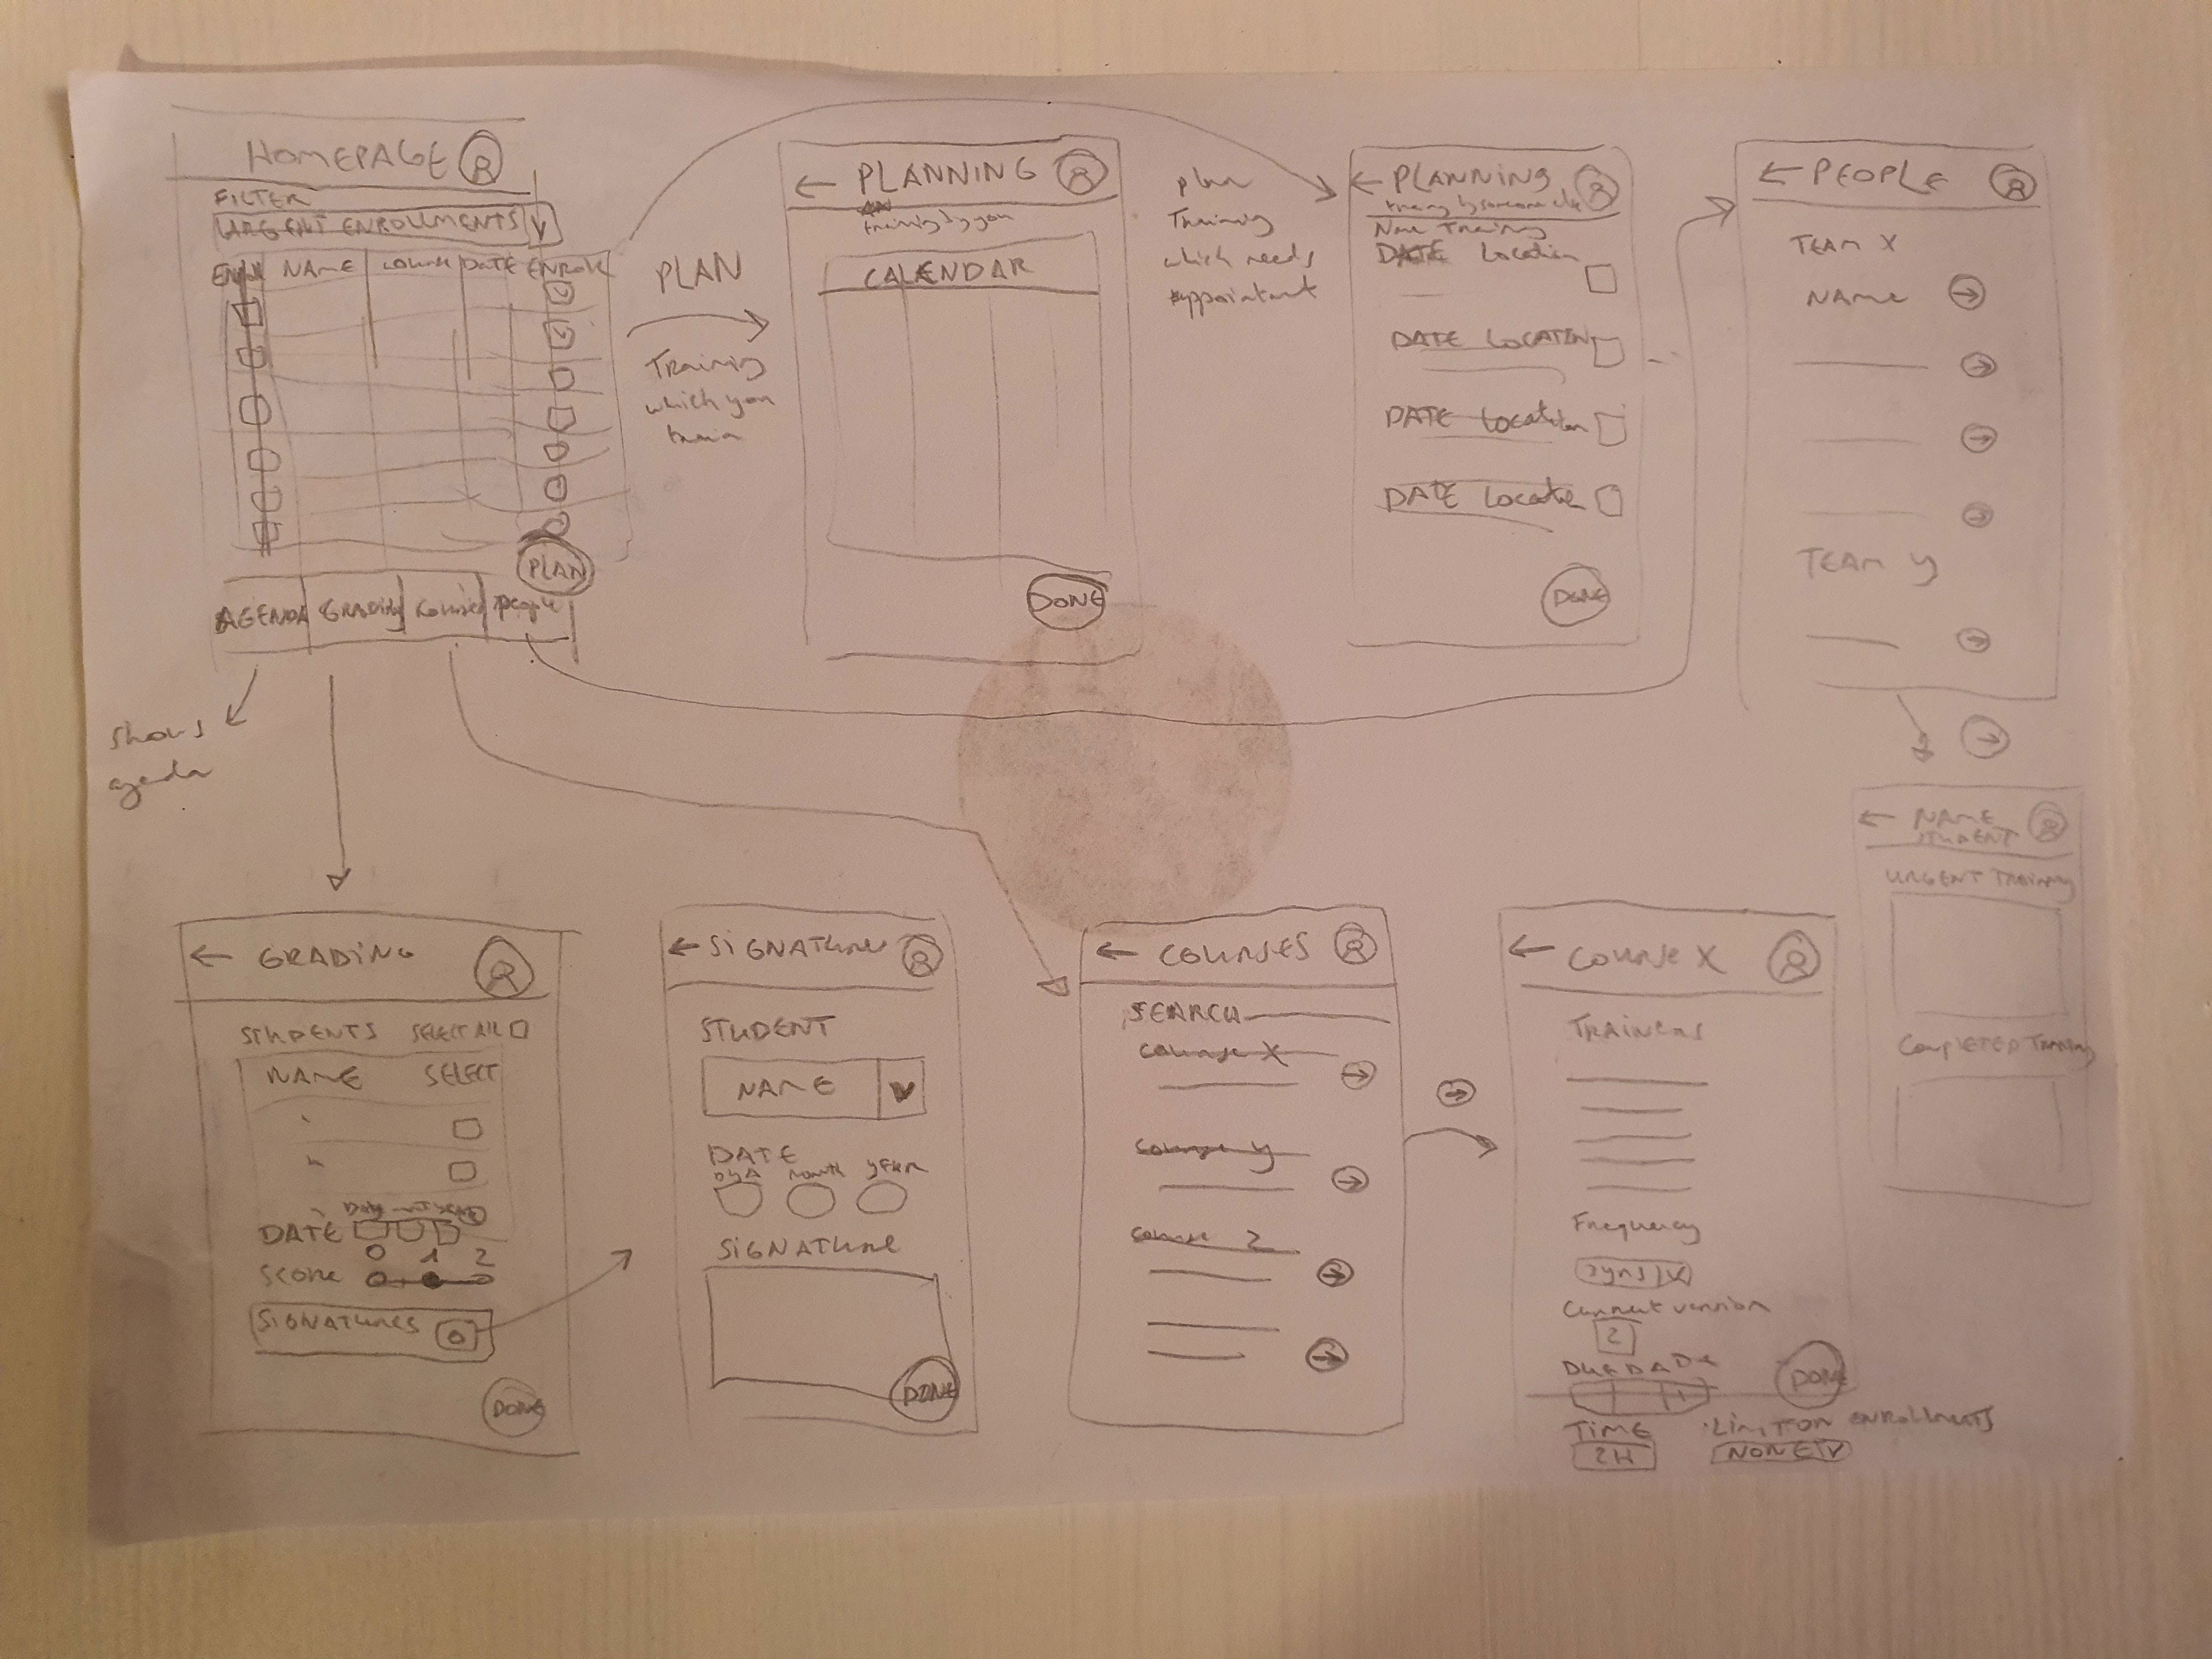 HOMEPAGE
FILTER
URGENT ENROLLMENTS V
NAME COURSE DATE ENROLL
PLAN
AGENDA GRADING Courses People
shows
agenda
PLAN
Training
which you
train
← PLANNING
training by you
CALENDAR
DONE
plan
Training
which needs
appointment
← PLANNING
training by someone else
Name Training
DATE Location
DATE LOCATION
DATE Location
DATE Location
DONE
← PEOPLE
TEAM X
NAME →
→
→
→
TEAM Y
→
→
← NAME
STUDENT
URGENT TRAINING
COMPLETED TRAINING
← GRADING
STUDENTS SELECT ALL
NAME SELECT
DATE
0 1 2
SCORE
SIGNATURES
DONE
← SIGNATURE
STUDENT
NAME V
DATE
month YEAR
SIGNATURE
DONE
← COURSES
SEARCH
Course X →
Course y →
Course Z →
→
→
← COURSE X
TRAINERS
Frequency
Current version
2
DUE DATE
DONE
TIME
2H
LIMIT ON ENROLLMENTS
NONE V